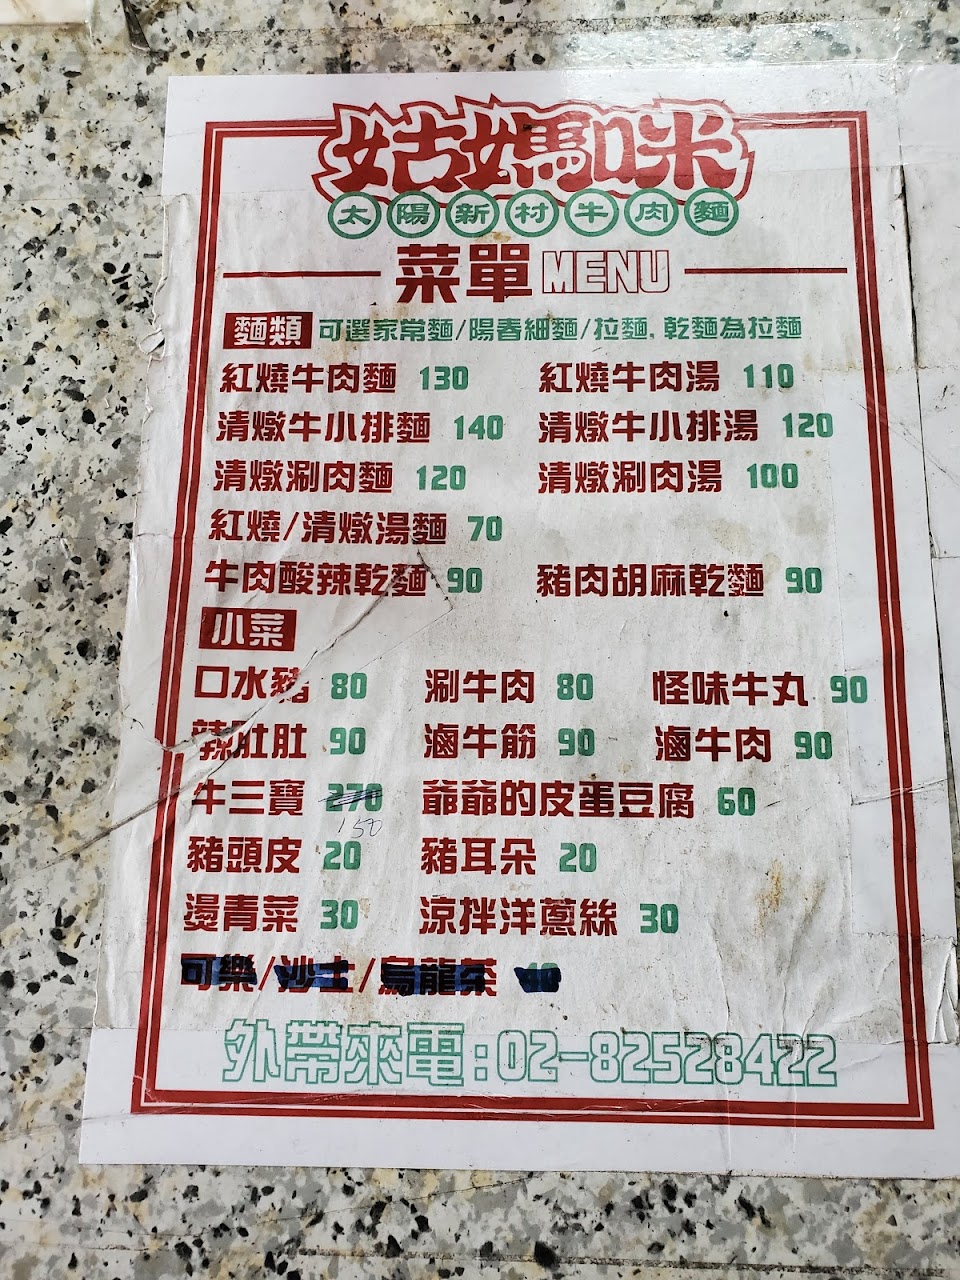 姑媽咪
太陽新村牛肉麵
菜單 MENU
麵類 可選家常麵/陽春細麵/拉麵, 乾麵為拉麵
紅燒牛肉麵 130 紅燒牛肉湯 110
清燉牛小排麵 140 清燉牛小排湯 120
清燉涮肉麵 120 清燉涮肉湯 100
紅燒/清燉湯麵 70
牛肉酸辣乾麵 90 豬肉胡麻乾麵 90
小菜
口水豬 80 涮牛肉 80 怪味牛丸 90
辣肚肚 90 滷牛筋 90 滷牛肉 90
牛三寶 270 爺爺的皮蛋豆腐 60
150
豬頭皮 20 豬耳朵 20
燙青菜 30 涼拌洋蔥絲 30
可樂/沙士/烏龍茶 40
外帶來電:02-82528422